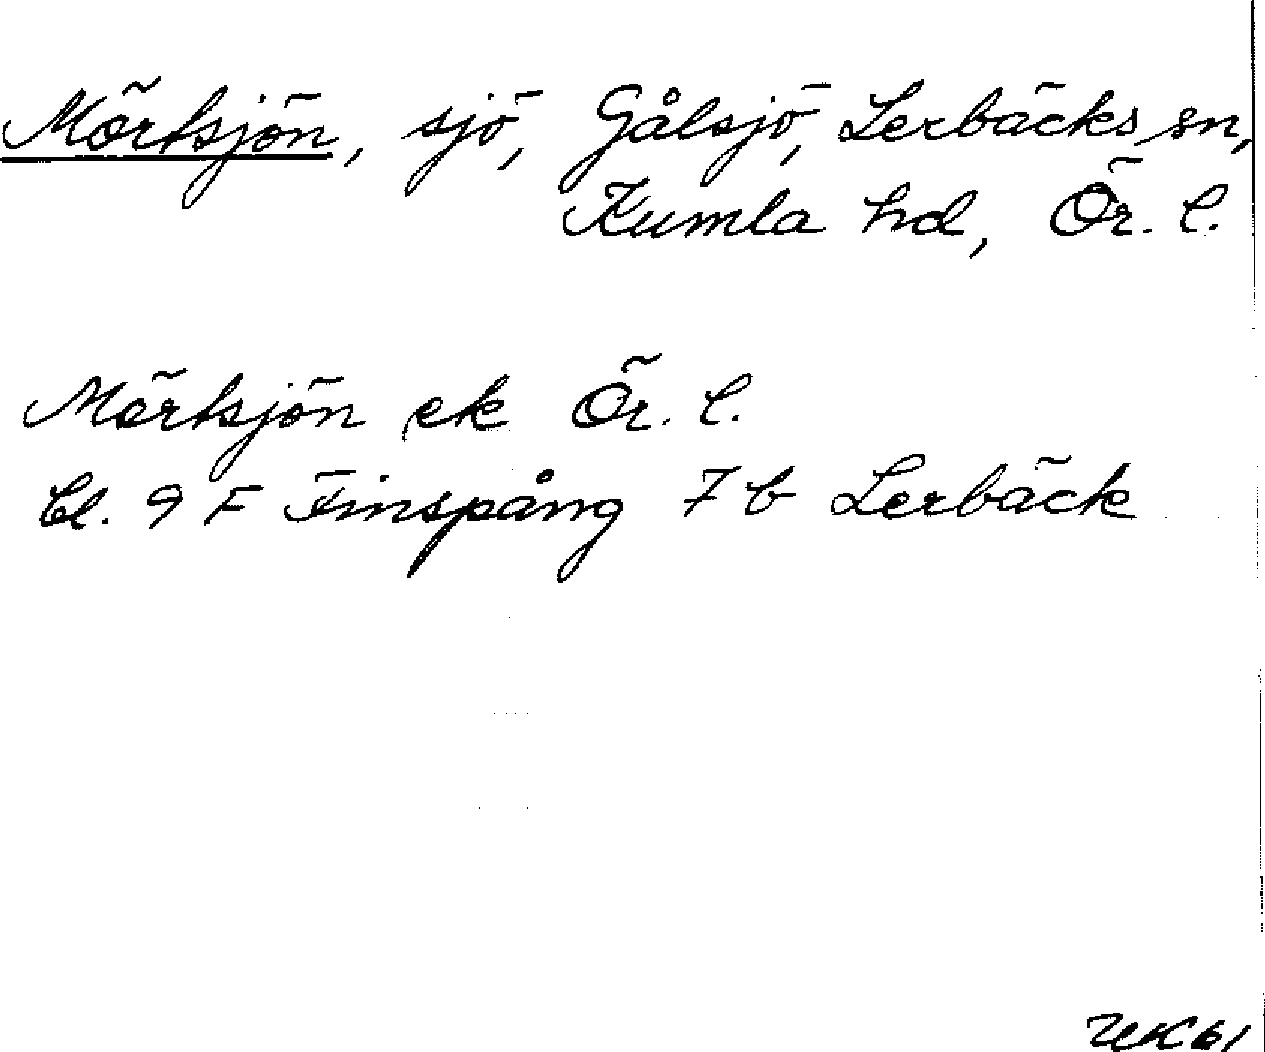 Mörtsjön, sjö, Gålsjö, Lerbäcks sn,
Kumla hd, Ör. l.
Mörtsjön ek Ör. l.
bl. 9 F Finspång 7 b Lerbäck